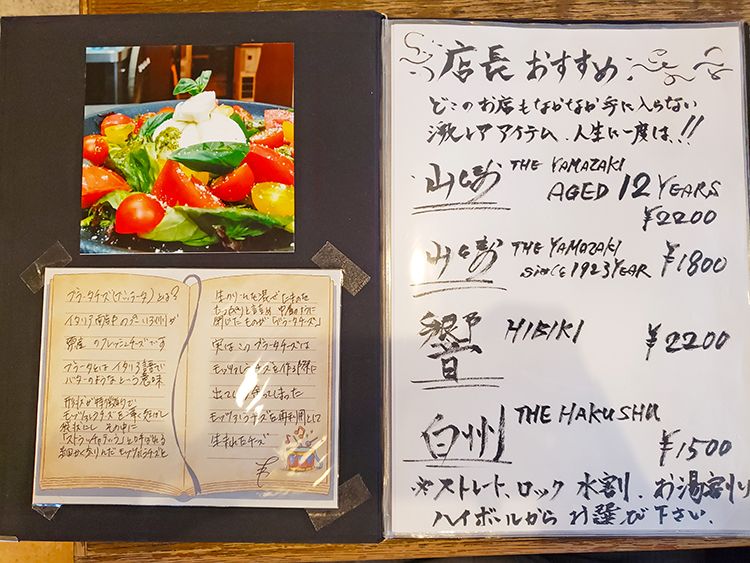 ブラータチーズ(ブッラータ)とは?
イタリア南部の
原産 のフレッシュチーズです
ブラータとは イタリア語で
バターのような という意味
モッツァレラチーズを
その中に
「ストラッチャテッラ」と呼ばれる
細かく刻んだモッツァレラチーズと
生クリームを混ぜたものを
「ブラータチーズ」
実はこのブラータチーズは
モッツァレラチーズを作る際に
出てしまった
モッツァレラチーズを再利用して
生まれたチーズ
店長 おすすめ
どこのお店もなかなか手に入らない
激レアアイテム、人生に一度は!!
山崎 THE YAMAZAKI
AGED 12 YEARS
¥2200
山崎 THE YAMAZAKI
since 1923 YEAR ¥1800
響 HIBIKI ¥2200
白州 THE HAKUSHU
¥1500
※ストレート、ロック 水割り、お湯割り
ハイボールから お選び下さい.